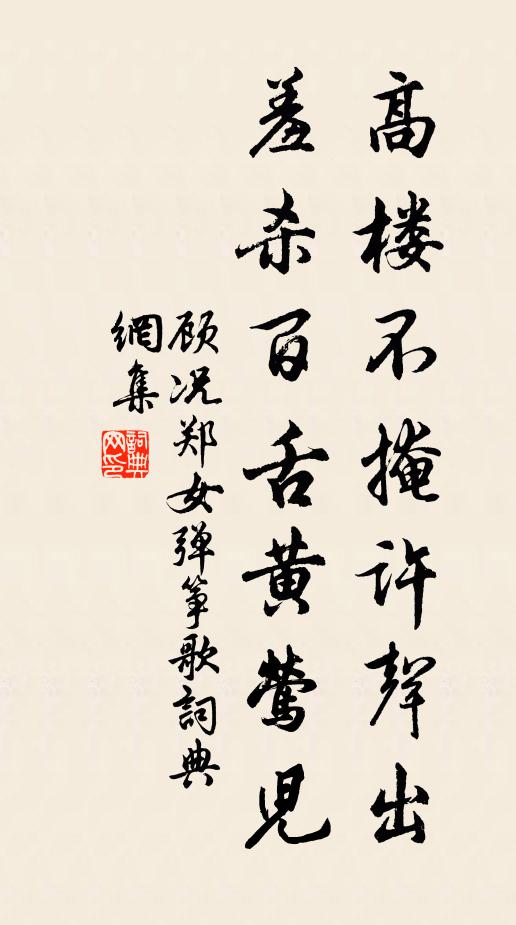 高楼不掩许聲出
羞杀百舌黄莺児
顾况郑女弹筝歌詞典
網集
詞典
网印